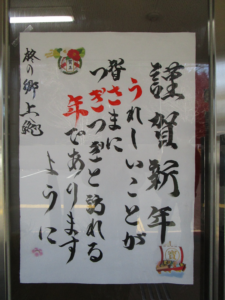 謹賀新年
うれしいことが
皆さまに
つぎつぎと訪れる
年であります
ように
柊の郷上鑓